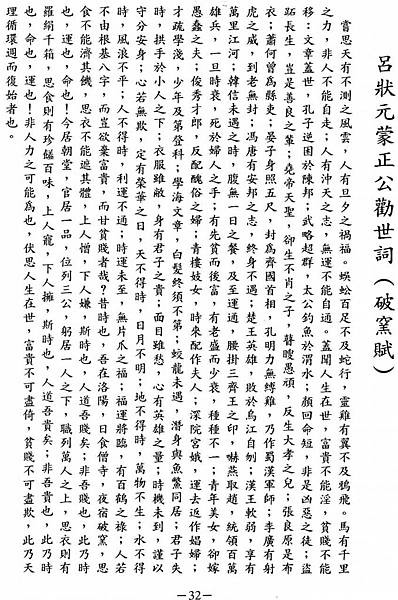 呂狀元蒙正公勸世詞(破窯賦)
嘗思天有不測之風雲,人有旦夕之禍福。蜈蚣百足不及蛇行,靈雞有翼不及鴉飛。馬有千里
之力,非人不能自走;人有沖天之志,無運不能自通。蓋聞人生在世,富貴不能淫,貧賤不能
移;文章蓋世,孔子逆困於陳邦;武略超群,太公釣魚於渭水;顏回命短,非是凶惡之徒;盜
跖長生,豈是善良之輩;堯帝天聖,卻生不肖之子,瞽瞍愚頑,反生大孝之兒;張良原是布
衣;蕭何曾為縣吏;晏子身照五尺,封為齊國首相,孔明力無縛雞,乃作蜀漢軍師;李廣有射
虎之威,到老無封;馮唐有安邦之志,終身不遇;楚王英雄,敗於烏江自刎;漢王軟弱,享有
萬里江河;韓信未遇之時,腹無一日之餐,及至運通,腰掛三齊王之印,嚇燕取趙,統領百萬
雄兵,一旦時衰,死於婦人之手;有先貧而後富,有老盛而少衰,種種不一;青年美女,卻嫁
愚蠢之夫;俊秀才郎,反配醜俗之婦;青樓妓女,時來配作夫人;深院宮娥,運去返作娼婦;
才疏學淺,少年及第登科;學海文章,白髮終須不第;蛟龍未遇,潛身與魚鱉同居;君子失
時,拱手於小人之下;衣服雖敝,身有君子之貴;面目雖愁,心有英雄之量;時機未到,謹以
守分安身;心若無欺,定有榮華之日,天不得時,日月不明;地不得時,萬物不生;水不得
時,風浪不平;人不得時,利運不通;時運未至,無片爪之福;福運將臨,有百鶴之祿;人若
不由根基八字,而豈欲棄富貴,而甘貧賤者哉?昔時也,吾在洛陽,日食僧寺,夜宿破窯,思
食不能濟其機,思衣不能遮其體,上人憎,下人嫌,斯時也,人道吾賤矣;非吾賤也,此乃時
也,運也,命也!今居朝堂,官居一品,位列三公,躬居一人之下,職列萬人之上,思衣則有
羅綃千箱,思食則有珍饈百味,上人寵,下人擁,斯時也,人道吾貴矣;非吾貴也,此乃時
也,命也,運也!非人力之可能為也,伏思人生在世,富貴不可盡倚,貧賤不可盡欺,此乃天
理循環週而復始者也。
—32—